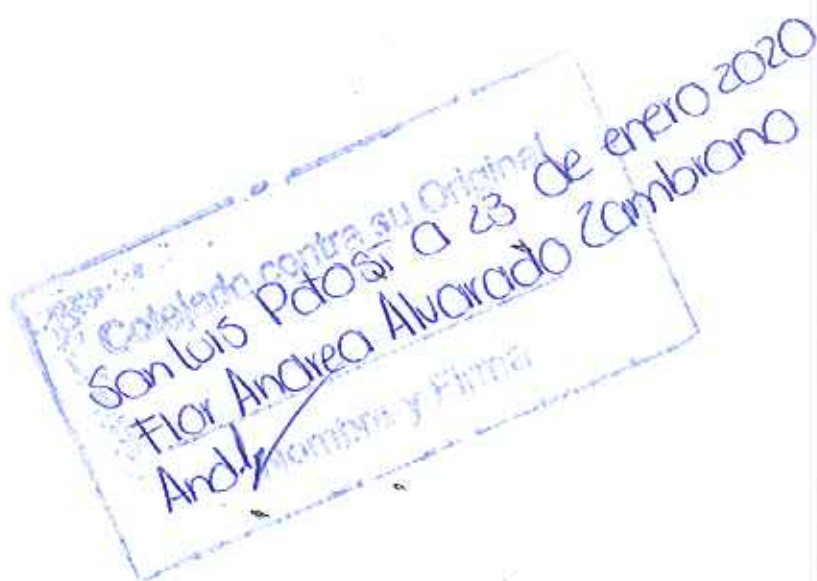 Cotejado contra su Original
San Luis Potosí a 23 de enero 2020
Flor Andrea Alvarado Zambrano
Nombre y Firma